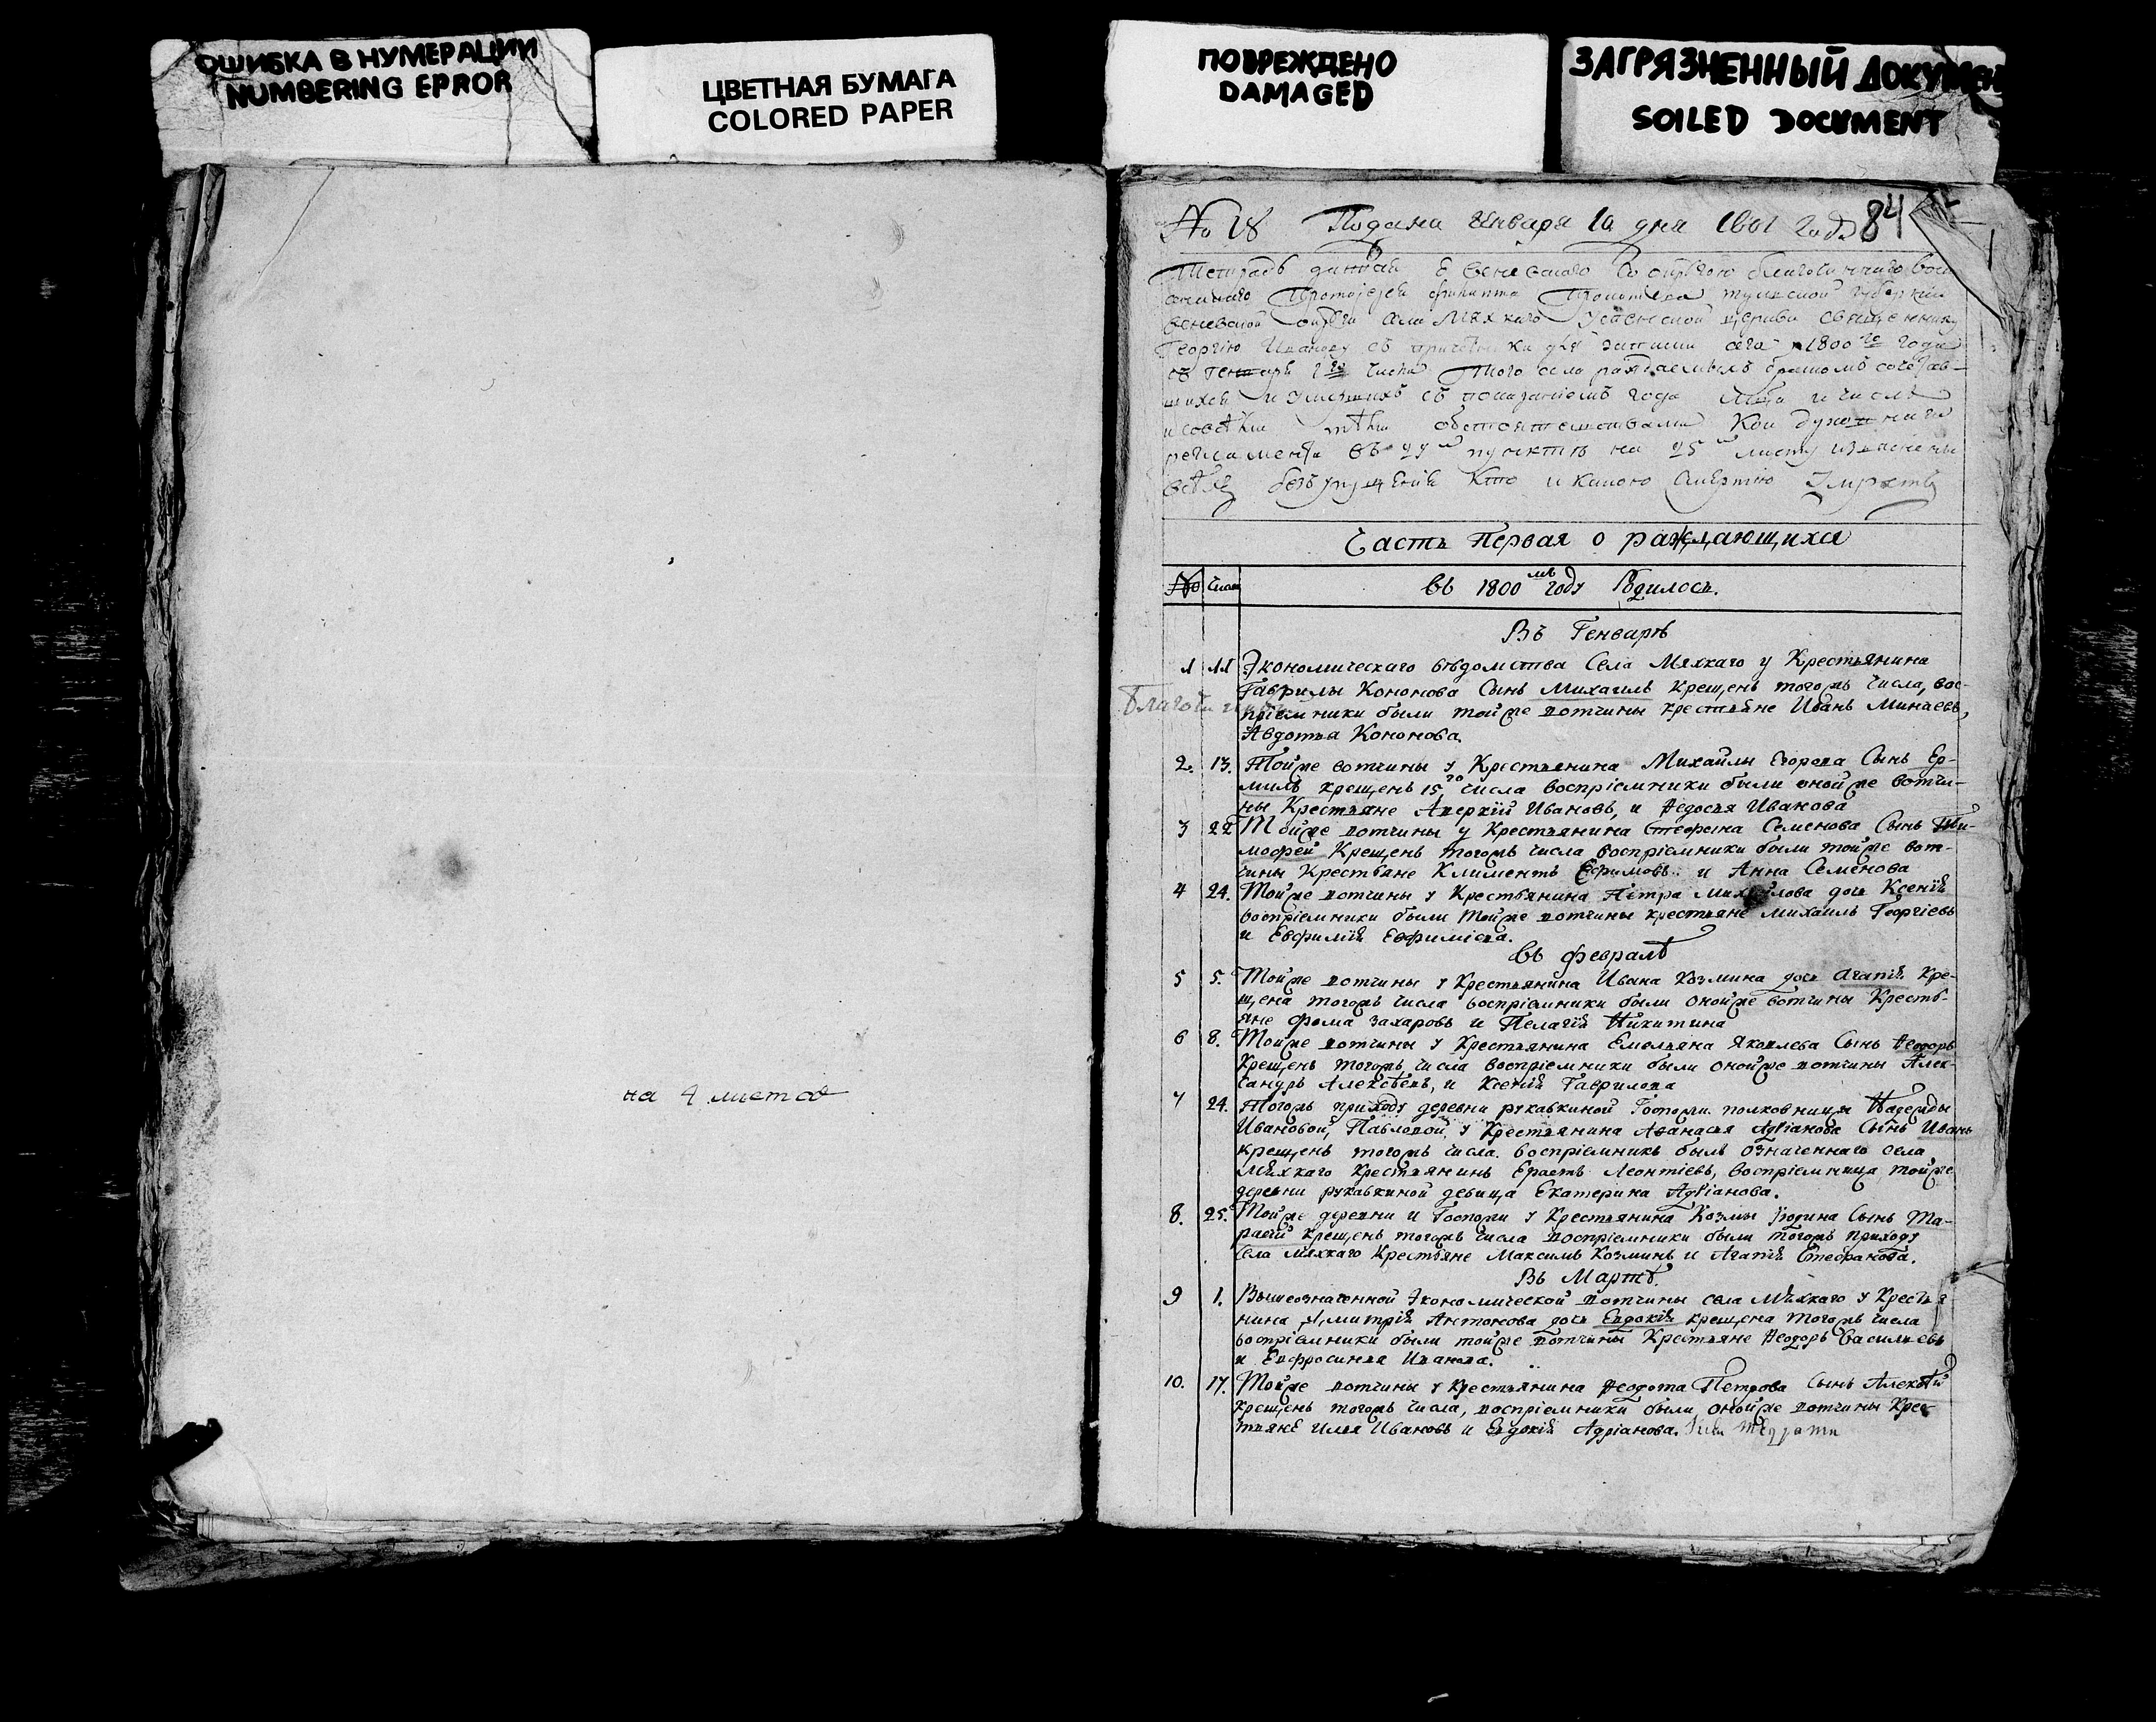 ОШИБКА В НУМЕРАЦИИ
NUMBERING ЕРROR
ЦВЕТНАЯ БУМАГА
COLORED PAPER
ПОВРЕЖДЕНО
DAMAGED
ЗАГРЯЗНЕННЫЙ ДОКУМЕН
SOILED DOCUMENT
на 4 листа
№ 18 Подана Января 10 дня 1801 года 84
Тетрадь данная
Протоиерея Филиппа тульской губернии
веневской округи села Мяхкаго Успенской церкви священнику
Георгию Иванову съ причетники для записки сего 1800го года
съ генваря 1го числа того села раждаемыхъ бракомъ сочетав-
шихся и умершихъ съ показаниемъ года и числа
и со всѣми тѣми обстоятельствами кои духовнаго
регламента въ 29м пунктѣ на 25м листу изъяснены
безъ упущения кто и какою смертию умретъ
Часть Первая о раждающихся
№ Числа въ 1800мъ году Родилось.
Въ Генварѣ
1 11 Экономическаго вѣдомства Села Мяхкаго у Крестьянина
Гаврилы Кононова Сынъ Михаилъ крещенъ тогожъ числа, вос-
пріемники были тойже вотчины крестьяне Иванъ Минаевъ,
Авдотья Кононова.
2. 13. Тойже вотчины у Крестьянина Михайлы Егорова Сынъ Ер-
милъ крещенъ 15го числа воспріемники были онойже вотчи-
ны Крестьяне Аверкій Ивановъ, и Ѳедосья Иванова
3 22 Тойже вотчины у Крестьянина Стефана Семенова Сынъ Ти-
мофей Крещенъ тогожъ числа воспріемники были тойже вот-
чины Крестьяне Климентъ Ефимовъ и Анна Семенова
4 24. Тойже вотчины у Крестьянина Петра Михайлова дочь Ксенія
воспріемники были тойже вотчины крестьяне Михаилъ Георгіевъ
и Евфимія Евфиміева.
въ февралѣ
5 5. Тойже вотчины у Крестьянина Ивана Козмина дочь Агапія кре-
щена тогожъ числа воспріемники были онойже вотчины Кресть-
яне фома Захаровъ и Пелагія Никитина
6 8. Тойже вотчины у Крестьянина Емельяна Яковлева Сынъ Ѳеодоръ
крещенъ тогожъ числа воспріемники были онойже вотчины Алек-
сандръ Алексѣевъ, и Ксенія Гаврилова
7 24. Тогожъ приходу деревни рукавкиной Госпожи полковницы Надежды
Ивановой, Павловой, у Крестьянина Аѳанасья Адріанова Сынъ Иванъ
крещенъ тогожъ числа. воспріемникъ былъ означеннаго села
Мяхкаго Крестьянинъ Ерастъ Леонтіевъ, воспріемница тойже
деревни рукавкиной девица Екатерина Адріанова.
8. 25. Тойже деревни и Госпожи у Крестьянина Козмы Юдина Сынъ Та-
расій крещенъ тогожъ числа воспріемники были тогожъ приходу
Села Мяхкаго Крестьяне Максимъ Козминъ и Агапія Стефанова.
Въ Мартѣ.
9 1. Вышеозначенной Экономической вотчины села Мяхкаго у Крестья-
нина Дмитрія Антонова дочь Евдокія крещена тогожъ числа
воспріемники были тойже вотчины Крестьяне Ѳеодоръ Васильевъ
и Евфросинья Иванова.
10. 17. Тойже вотчины у Крестьянина Ѳеодота Петрова Сынъ Алексѣй
крещенъ тогожъ числа, воспріемники были онойже вотчины Крес-
тьяне Илья Ивановъ и Евдокія Адріанова.